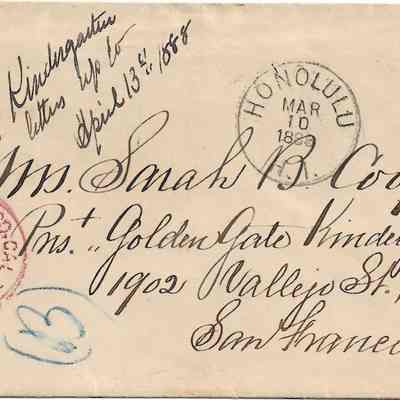 Kindergarten
letters up to
April 13th, 1888
HONOLULU
MAR
10
1888
H.I.
Mrs. Sarah B. Coo
Prst "Golden Gate Kinde
1902 Vallejo St.,
San Franc
(B)